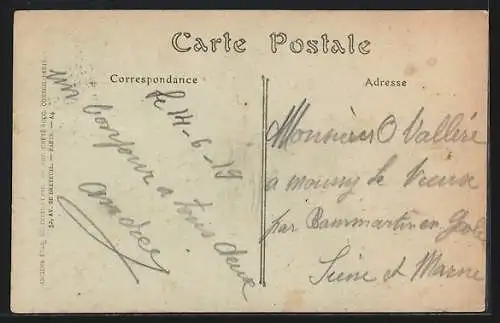 Carte Postale
Correspondance
Adresse
le 14-6-19
un bonjour
a tous deux
andrée
Monsieur O Vallère
a moussy le Vieux
par Dammartin en Goële
Seine et Marne